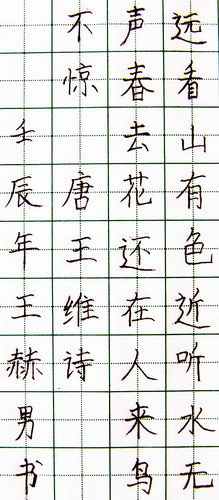 远看山有色近听水无
声春去花还在人来鸟
不惊 唐王维诗
壬辰年王赫男书